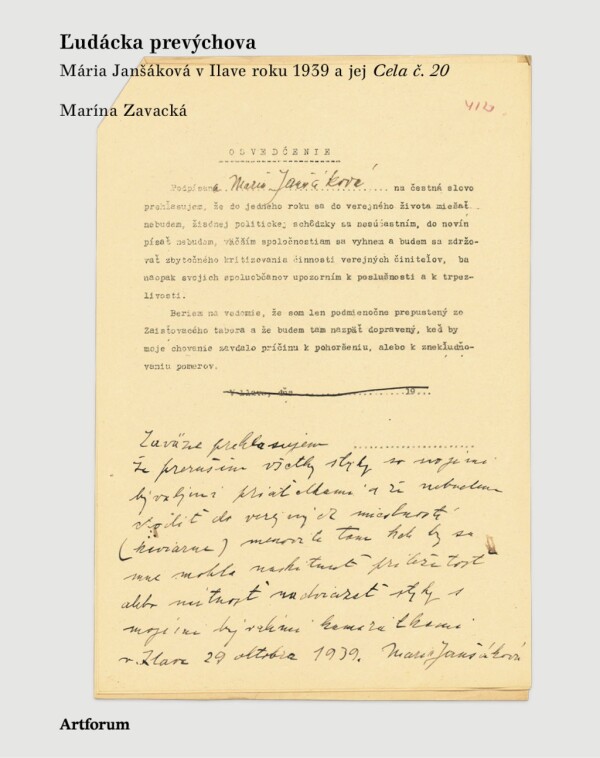 Ľudácka prevýchova
Mária Janšáková v Ilave roku 1939 a jej Cela č. 20
Marína Zavacká
412.
O S V E D Č E N I E
Podpísaná Maria Janšáková na čestné slovo
prehlasujem, že do jedného roku sa do verejného života miešať
nebudem, žiadnej politickej schôdzky sa nesúčastním, do novín
písať nebudem, väčším spoločnostiam sa vyhnem a budem sa zdržo-
vať zbytočného kritizovania činnosti verejných činiteľov, ba
naopak svojich spoluobčanov upozorním k poslušnosti a k trpez-
livosti.
Beriem na vedomie, že som len podmienočne prepustený zo
Zaisťovacieho tábora a že budem tam nazpäť dopravený, keď by
moje chovanie zavdalo príčinu k pohoršeniu, alebo k znekľudňo-
vaniu pomerov.
V Ilave, dňa 19...
Zaväzne prehlasujem
že preruším všetky styky so svojimi
bývalými priateľkami a že nebudem
chodiť do verejných miestností
(kaviarne) menovite tam kde by sa
mne mohla naskytnúť príležitosť
alebo nútnosť nadviazať styky s
mojimi bývalími kamarátkami
v Ilave 29 oktobra 1939. Maria Janšáková
Artforum